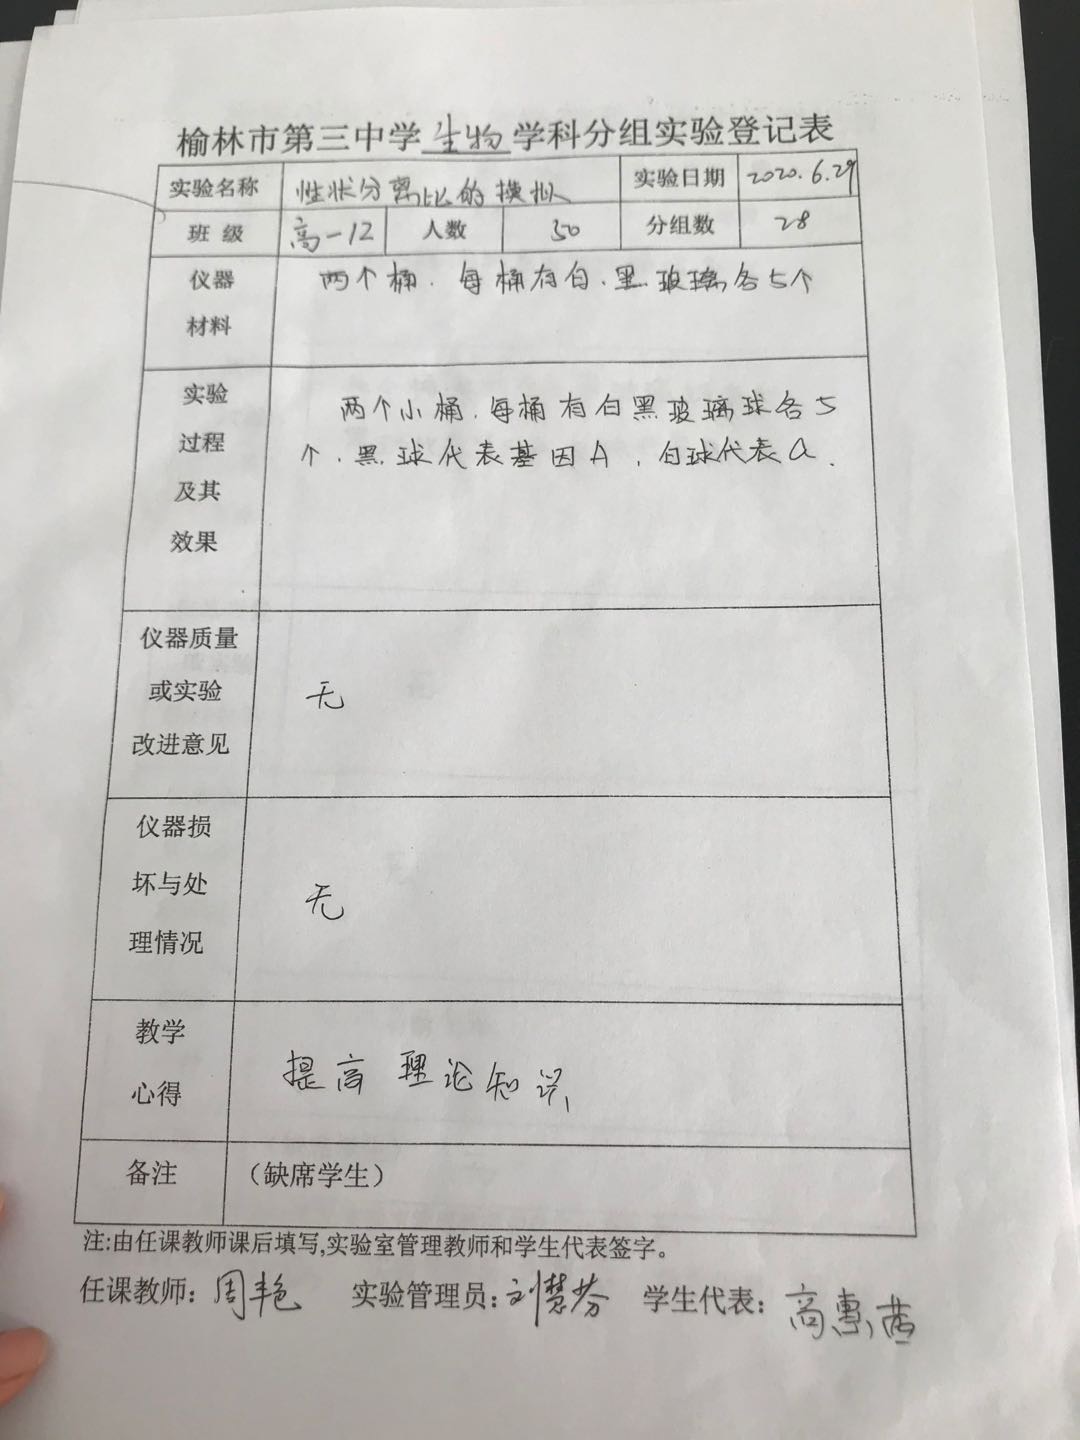 榆林市第三中学生物学科分组实验登记表
实验名称 性状分离比的模拟 实验日期 2020.6.29
班 级 高一12 人数 50 分组数 28
仪器 两个桶.每桶有白.黑玻璃各5个
材料
实验 两个小桶.每桶有白黑玻璃球各5
过程 个.黑球代表基因A,白球代表a.
及其
效果
仪器质量
或实验 无
改进意见
仪器损
坏与处 无
理情况
教学 提高理论知识
心得
备注 (缺席学生)
注:由任课教师课后填写,实验室管理教师和学生代表签字。
任课教师:周艳 实验管理员:刘慧芬 学生代表:高惠茜